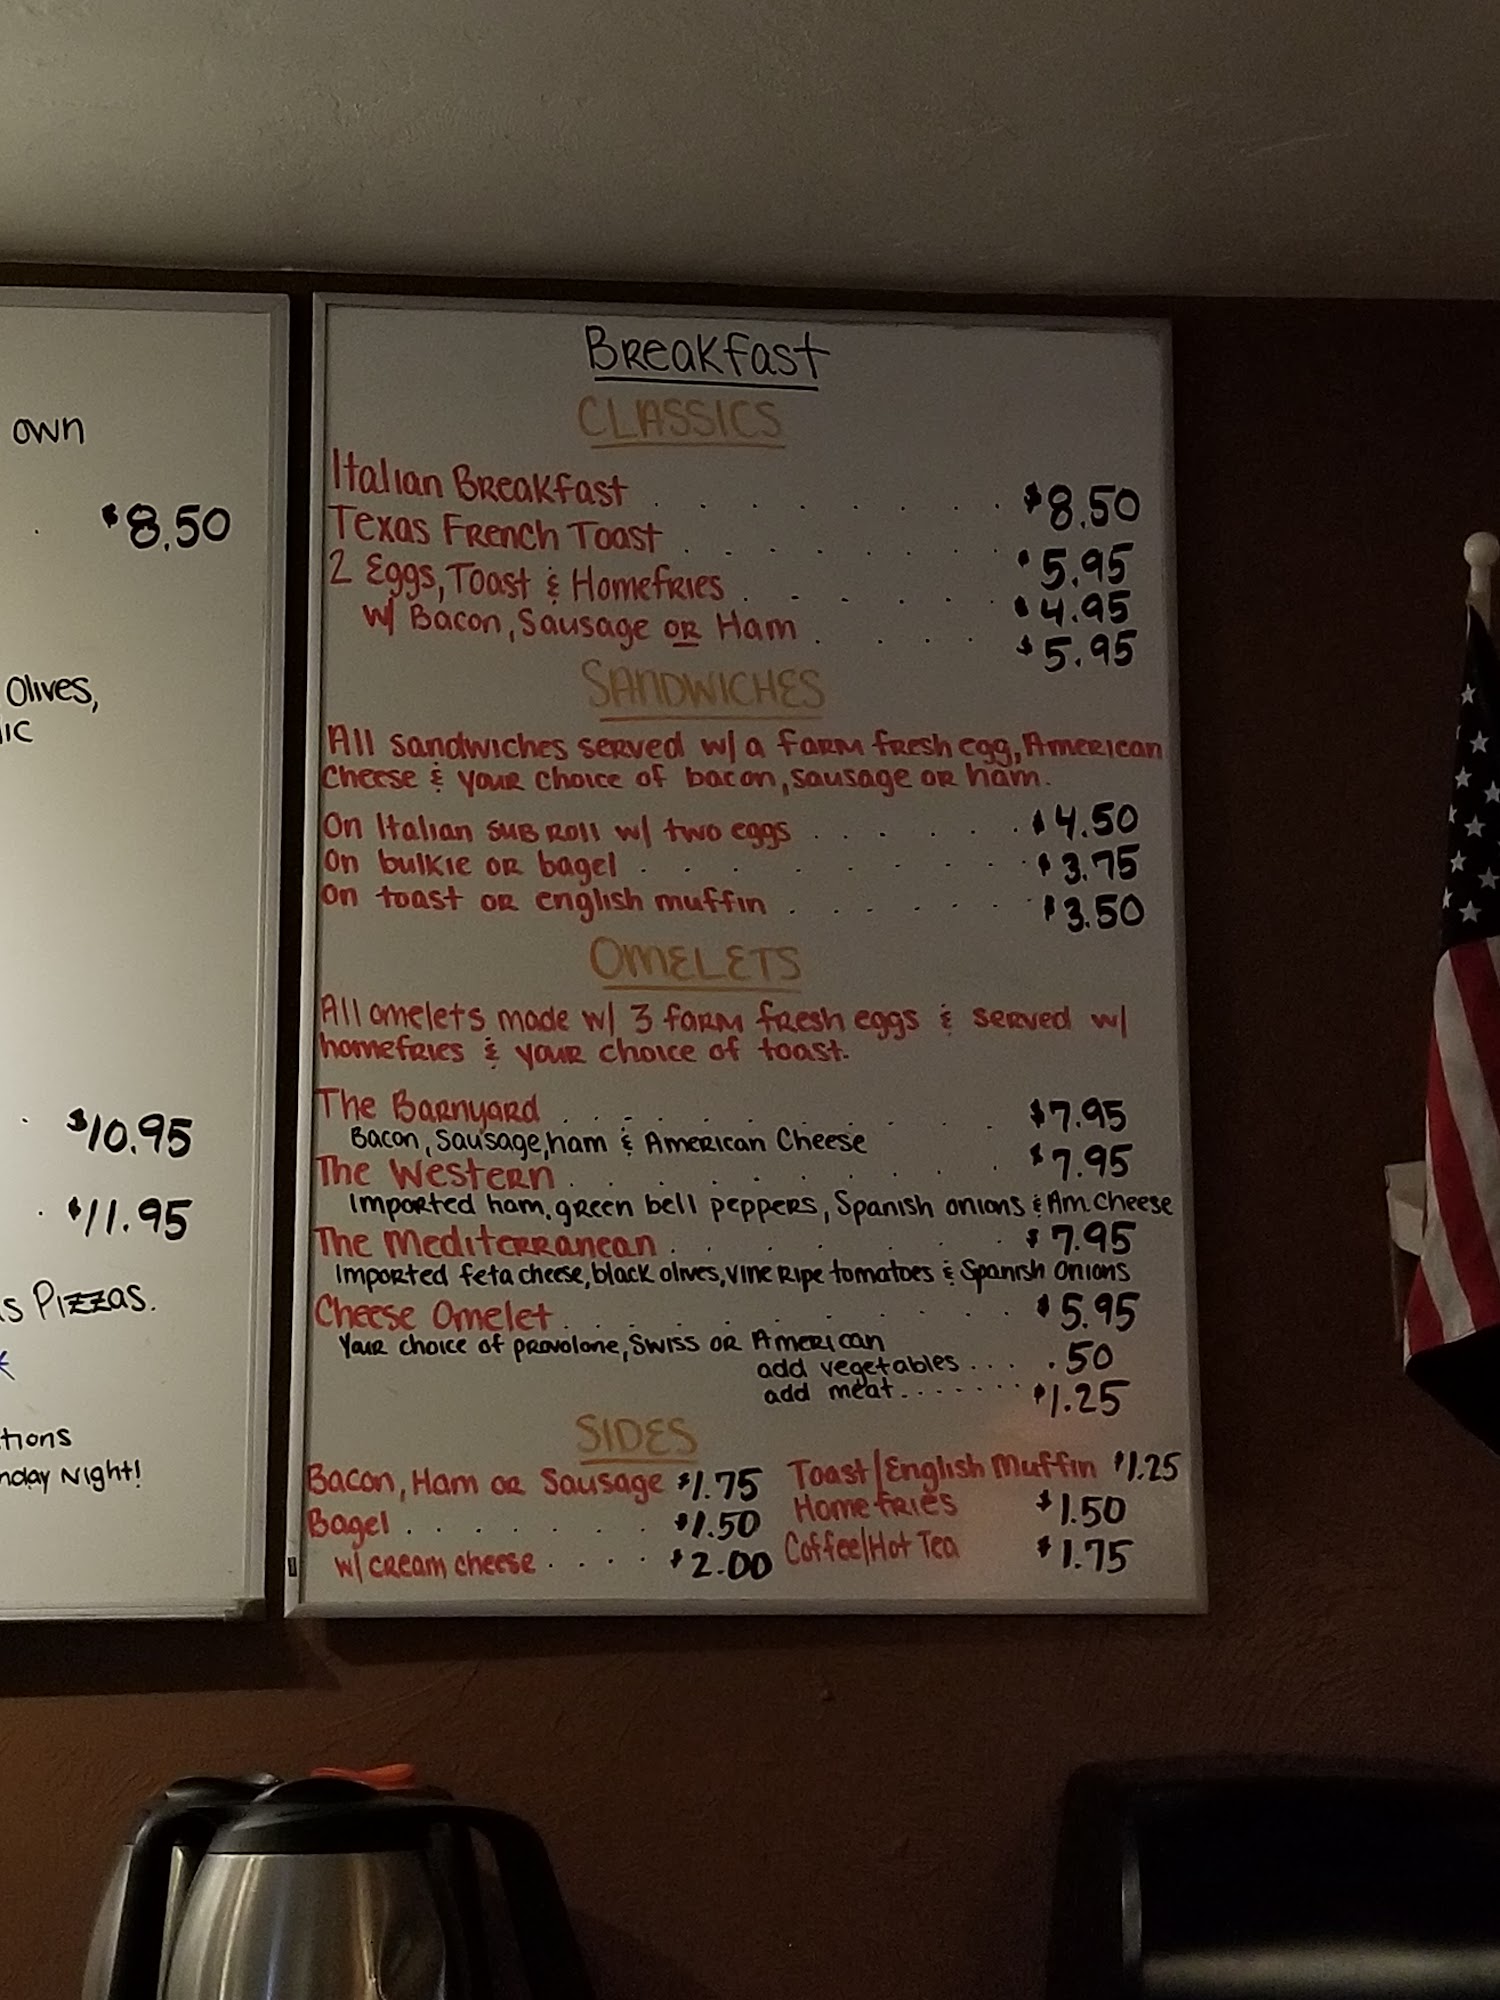 own
$8.50
Olives,
$10.95
$11.95
Pizzas.
Night!
Breakfast
CLASSICS
Italian Breakfast . . . . . . . . $8.50
Texas French Toast . . . . . . . . $5.95
2 Eggs, Toast & Homefries . . . . . . $4.95
w/ Bacon, Sausage or Ham . . . . $5.95
SANDWICHES
All sandwiches served w/ a farm fresh egg, American
cheese & your choice of bacon, sausage or ham.
On Italian sub roll w/ two eggs . . . . . . $4.50
On bulkie or bagel . . . . . . . . . $3.75
On toast or english muffin . . . . . . . $3.50
OMELETS
All omelets made w/ 3 farm fresh eggs & served w/
homefries & your choice of toast.
The Barnyard . . . . . . . . . . $7.95
Bacon, Sausage, ham & American Cheese
The Western . . . . . . . . . $7.95
Imported ham, green bell peppers, Spanish onions & Am. Cheese
The Mediterranean . . . . . . . $7.95
Imported feta cheese, black olives, vine ripe tomatoes & Spanish onions
Cheese Omelet . . . . . . . . . $5.95
Your choice of provolone, Swiss or American
add vegetables . . . .50
add meat . . . . . . . $1.25
SIDES
Bacon, Ham or Sausage $1.75
Bagel . . . . . . . $1.50
w/ cream cheese . . . . $2.00
Toast/English Muffin $1.25
Homefries $1.50
Coffee/Hot Tea $1.75